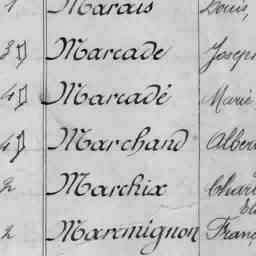 1 Marais Louis,
3 Marcade Joseph
4 Marcadé Marie
4 Marchand Alber
2 Marchix Char
2 Marmignon Franç